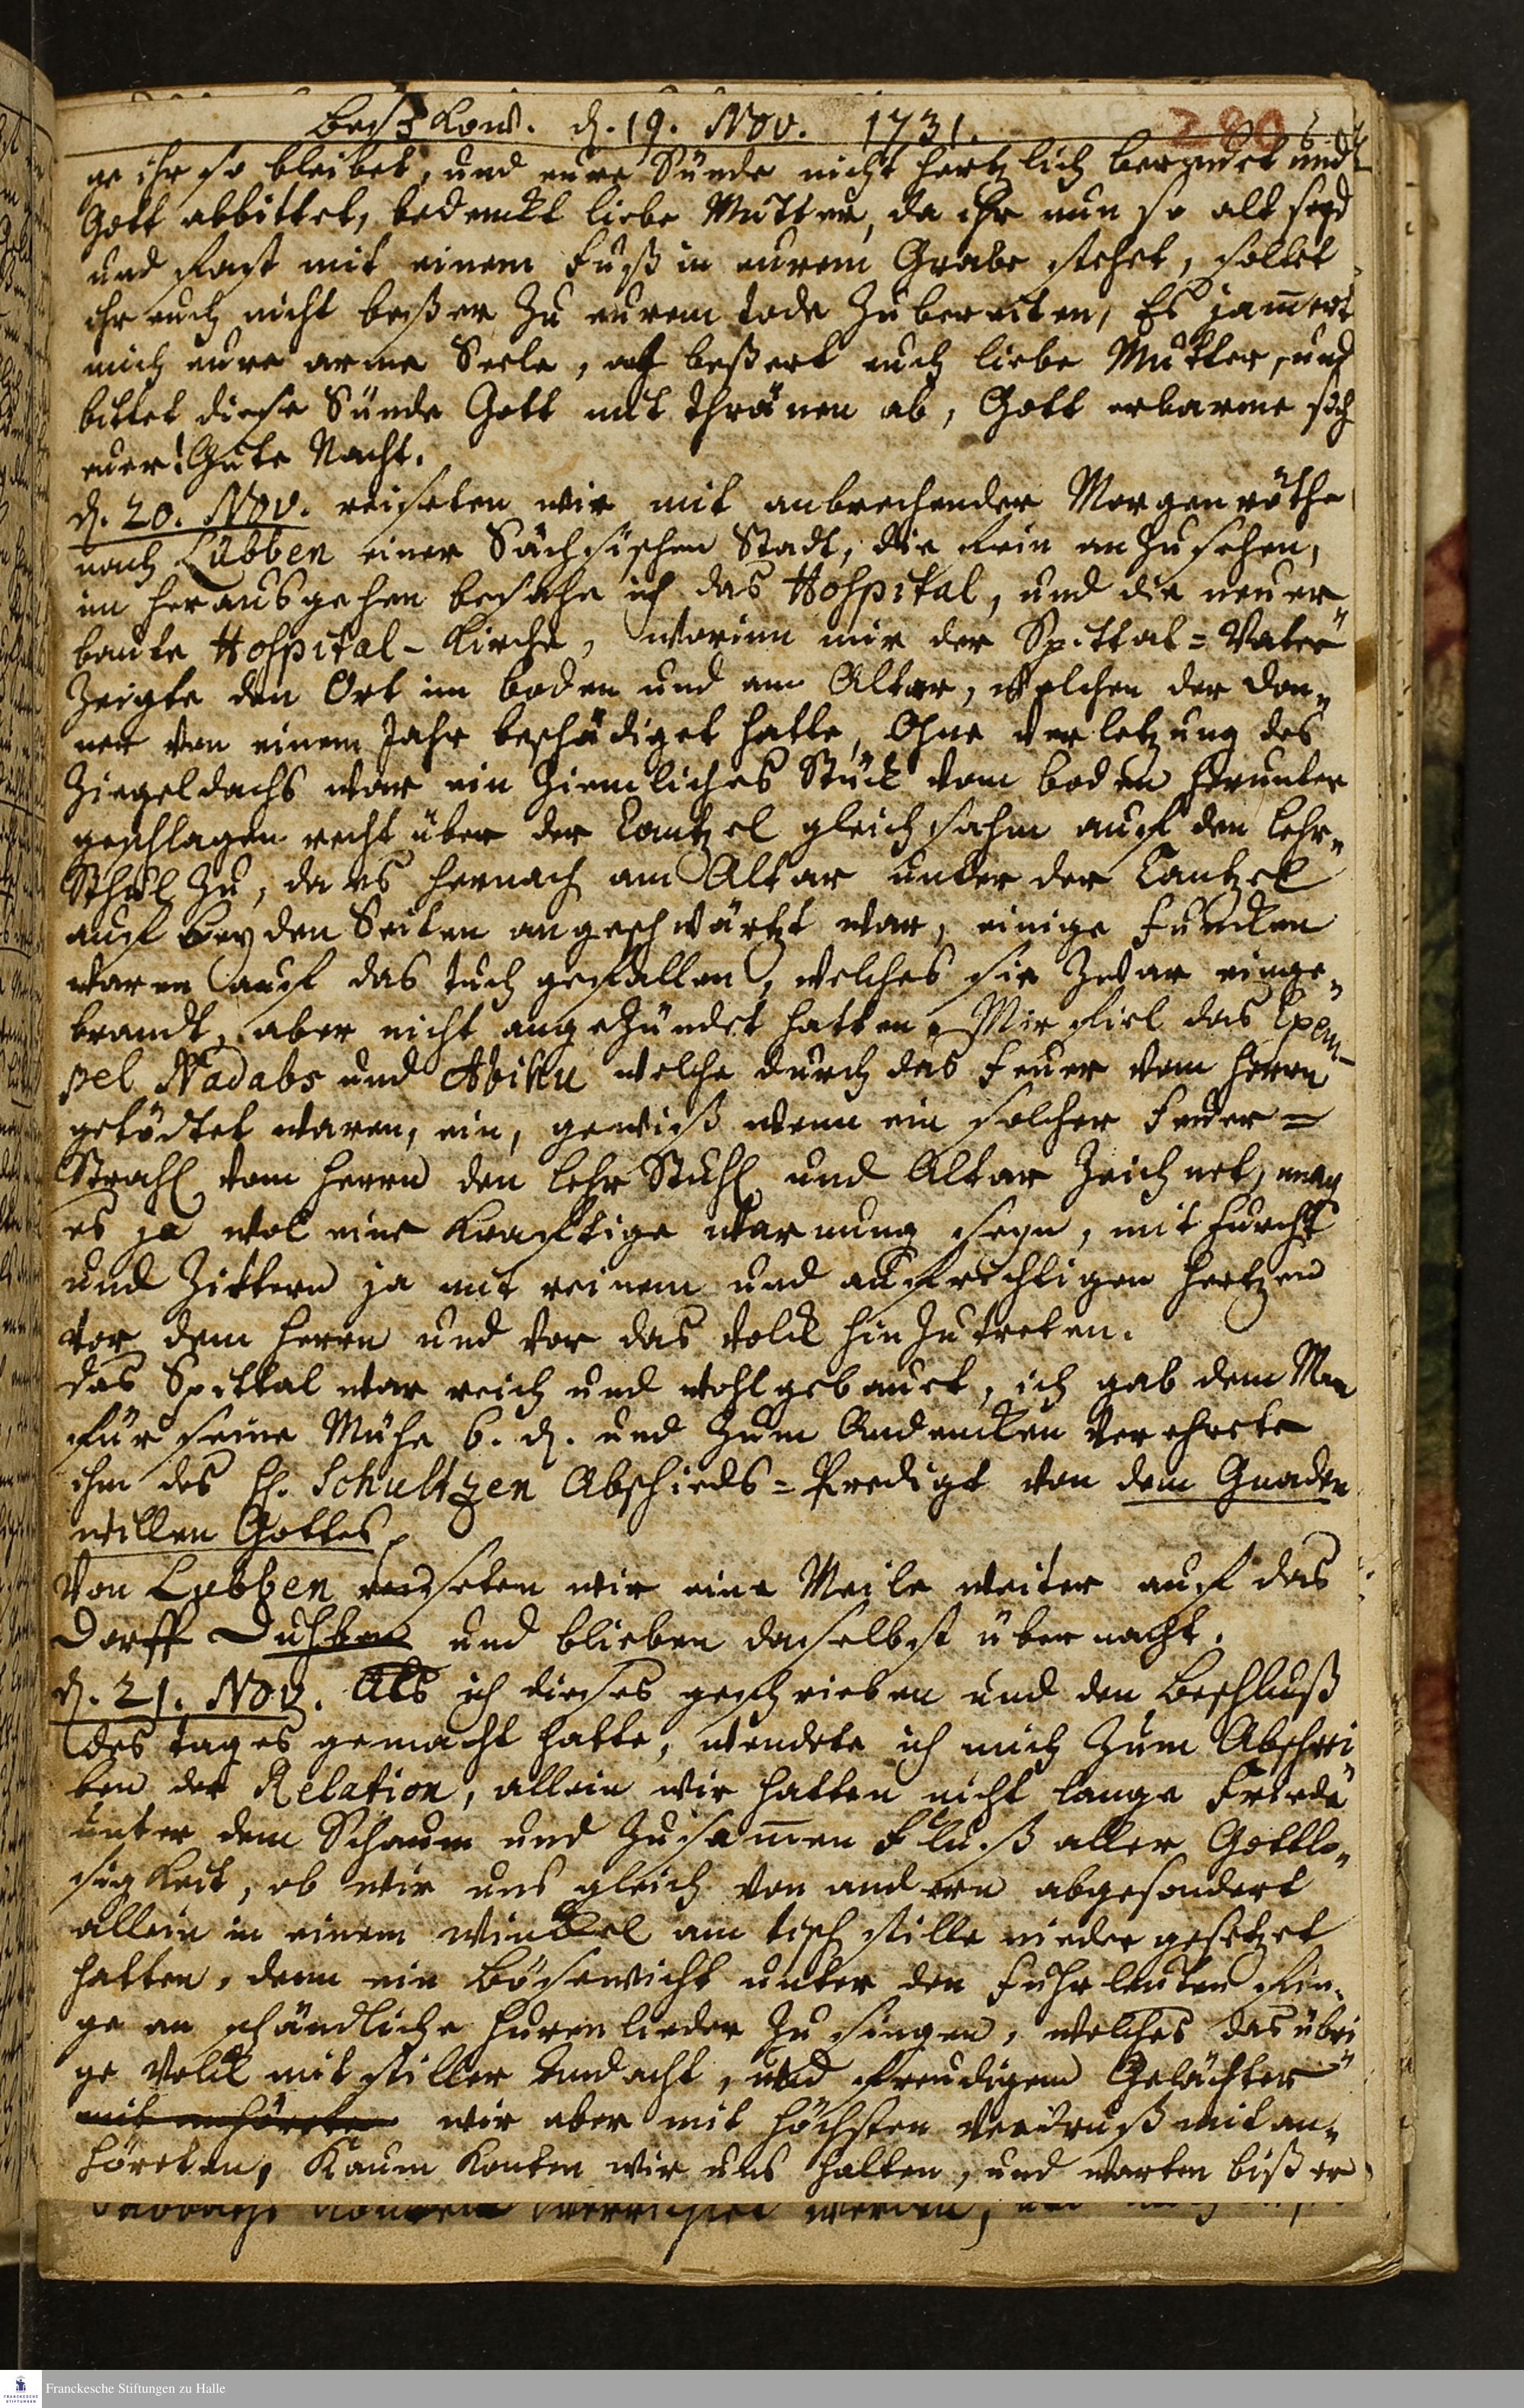 Besskow. d. 19. Nov. 1731.
280
ge ihr so bleibet, und eure Sünde nicht hertzlich bereuet und
Gott abbittet, bedenckt liebe Mutter, da ihr nun so alt seyd
und fast mit einem Fuß in eurem Grabe stehet, soltet
ihr euch nicht beßer zu eurem tode zubereiten, Es jam̄ert
mich eure arme Seele, beßert euch liebe Mutter, und
bittet diese Sünde Gott mit thränen ab, Gott erbarme sich
euer! Gute Nacht.
d. 20. Nov. reiseten wir mit anbrechender Morgenröthe
nach Lübben einer Sächsischen Stadt, die fein anzusehen,
im herausgehen besahe ich das Hospital, und die neuer
baute Hospital-Kirche, worinn mir der Spittal=Vater
zeigte den Ort im boden und am Altar, welchen der Don„
ner von einem Jahr beschädiget hatte, Ohne verletzung des
Ziegeldachs war ein ziemliches Stück vom boden herunter
geschlagen recht über der Cantzel gleichsahm auf den Lehr„
Stuhl zu, da es hernach am Altar unter der Cantzel
auf beyden Seiten angeschwärtzt war, einige Funcken
waren auf das tuch gefallen, welches sie zwar einge„
brandt, aber nicht angezündet hatten. Mir fiel das Exem
pel Nadabs und Abihu welche durch das Feuer vom Herrn
getödtet waren, ein, gewiß wenn ein solcher Feuer=
Strahl vom Herrn den Lehr Stuhl und Altar zeichnet, mag
es ja wol eine kräftige warnung seyn, mit Furcht
und Zittern ja mit reinem und aufrichtigen Hertzen
vor dem Herrn und vor das Volck hinzutreten.
Das Spittal war reich und wohlgebauet, ich gab dem Man
für seine Mühe 6. d. und zum Andencken verehrete
ihm des H. Schultzen Abschieds=Predigt von dem Gnaden
willen Gottes.
Von Lübben reiseten wir eine Meile weiter auf das
Dorff und blieben daselbst über nacht.
d. 21. Nov. Als ich dieses geschrieben und den Beschluß
des tages gemacht hatte, wendete ich mich zum Abschrei„
ben der Relation, allein wir hatten nicht lange Friede
unter dem Schaum und Zusam̄en Fluß aller Gottlo„
sigkeit, ob wir uns gleich von andern abgesondert
allein in einem winckel am tisch stille nieder gesetzet
hatten, denn ein Bösewicht unter den Fuhrleuten fin„
ge an schändliche Hurenlieder zu singen, welches das übri
ge Volck mit stiller Andacht, und freudigem Gelächter
mit anhörete wir aber mit höchsten Verdruß mit an„
höreten, Kaum konten wir uns halten, und warten biß er
Franckesche Stiftungen zu Halle